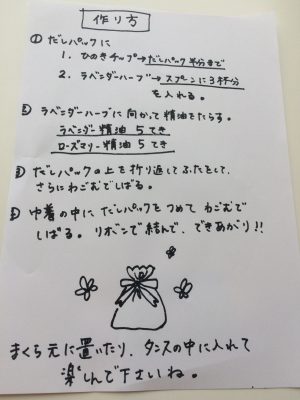 作り方
① だしパックに
1. ひのきチップ→だしパック半分まで
2. ラベンダーハーブ→スプーンに3杯分
を入れる。
② ラベンダーハーブに向かって精油をたらす。
ラベンダー精油 5てき
ローズマリー精油 5てき
③ だしパックの上を折り返してふたをして、
さらにわごむでしばる。
④ 巾着の中にだしパックをつめてわごむで
しばる。リボンで結んで、できあがり!!
まくら元に置いたり、タンスの中に入れて
楽しんで下さいね。